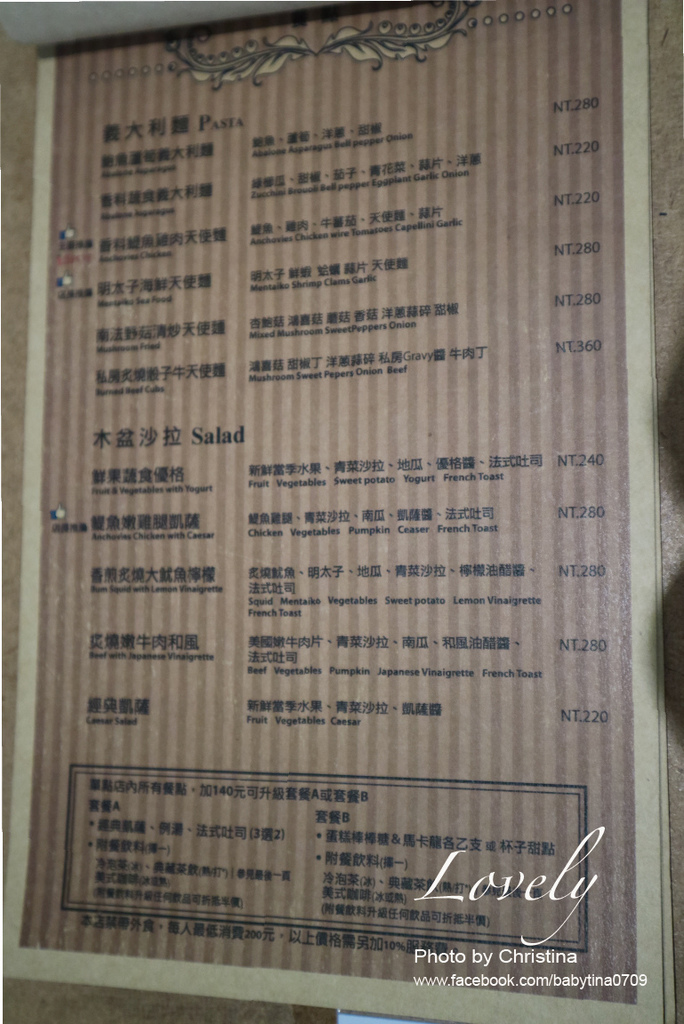 義大利麵 PASTA
鮑魚蘆筍義大利麵 鮑魚、蘆筍、洋蔥、甜椒 NT.280
Abalone Asparagus Abalone Asparagus Bell pepper Onion
香料蔬食義大利麵 綠櫛瓜、甜椒、茄子、青花菜、蒜片、洋蔥 NT.220
Zucchini Broccoli Bell pepper Eggplant Garlic Onion
香料鯷魚雞肉天使麵 鯷魚、雞肉、牛蕃茄、天使麵、蒜片 NT.220
Anchovies Chicken Anchovies Chicken wire Tomatoes Capellini Garlic
明太子海鮮天使麵 明太子 鮮蝦 蛤蠣 蒜片 天使麵 NT.280
Mentaiko Sea Food Mentaiko Shrimp Clams Garlic
南法野菇清炒天使麵 杏鮑菇 鴻喜菇 蘑菇 香菇 洋蔥蒜碎 甜椒 NT.280
Mushroom Fried Mixed Mushroom SweetPeppers Onion
私房炙燒骰子牛天使麵 鴻喜菇 甜椒丁 洋蔥蒜碎 私房Gravy醬 牛肉丁 NT.360
Burned Beef Cubs Mushroom Sweet Pepers Onion Beef
木盆沙拉 Salad
鮮果蔬食優格 新鮮當季水果、青菜沙拉、地瓜、優格醬、法式吐司 NT.240
Fruit & Vegetables with Yogurt Fruit Vegetables Sweet potato Yogurt French Toast
鯷魚嫩雞腿凱薩 鯷魚雞腿、青菜沙拉、南瓜、凱薩醬、法式吐司 NT.280
Anchovies Chicken with Caesar Chicken Vegetables Pumpkin Ceaser French Toast
香煎炙燒大魷魚檸檬 炙燒魷魚、明太子、地瓜、青菜沙拉、檸檬油醋醬、 NT.280
法式吐司
Squid with Lemon Vinaigrette Squid Mentaiko Vegetables Sweet potato Lemon Vinaigrette
French Toast
炙燒嫩牛肉和風 美國嫩牛肉片、青菜沙拉、南瓜、和風油醋醬、 NT.280
法式吐司
Beef with Japanese Vinaigrette Beef Vegetables Pumpkin Japanese Vinaigrette French Toast
經典凱薩 新鮮當季水果、青菜沙拉、凱薩醬 NT.220
Caesar Salad Fruit Vegetables Caesar
單點店內所有餐點，加140元可升級套餐A或套餐B
套餐A
• 經典凱薩、例湯、法式吐司 (3選2)
• 附餐飲料(擇一)
冷泡茶(冰)、典藏茶飲(熱/打*) 參見最後一頁
美式咖啡(冰或熱)
(附餐飲料升級任何飲品可折抵半價)
套餐B
• 蛋糕棒棒糖＆馬卡龍各乙支 或 杯子甜點
• 附餐飲料(擇一)
冷泡茶(冰)、典藏茶飲(熱/打*)
美式咖啡(冰或熱)
(附餐飲料升級任何飲品可折抵半價)
本店禁帶外食，每人最低消費200元，以上價格需另加10%服務費
Lovely
Photo by Christina
www.facebook.com/babytina0709